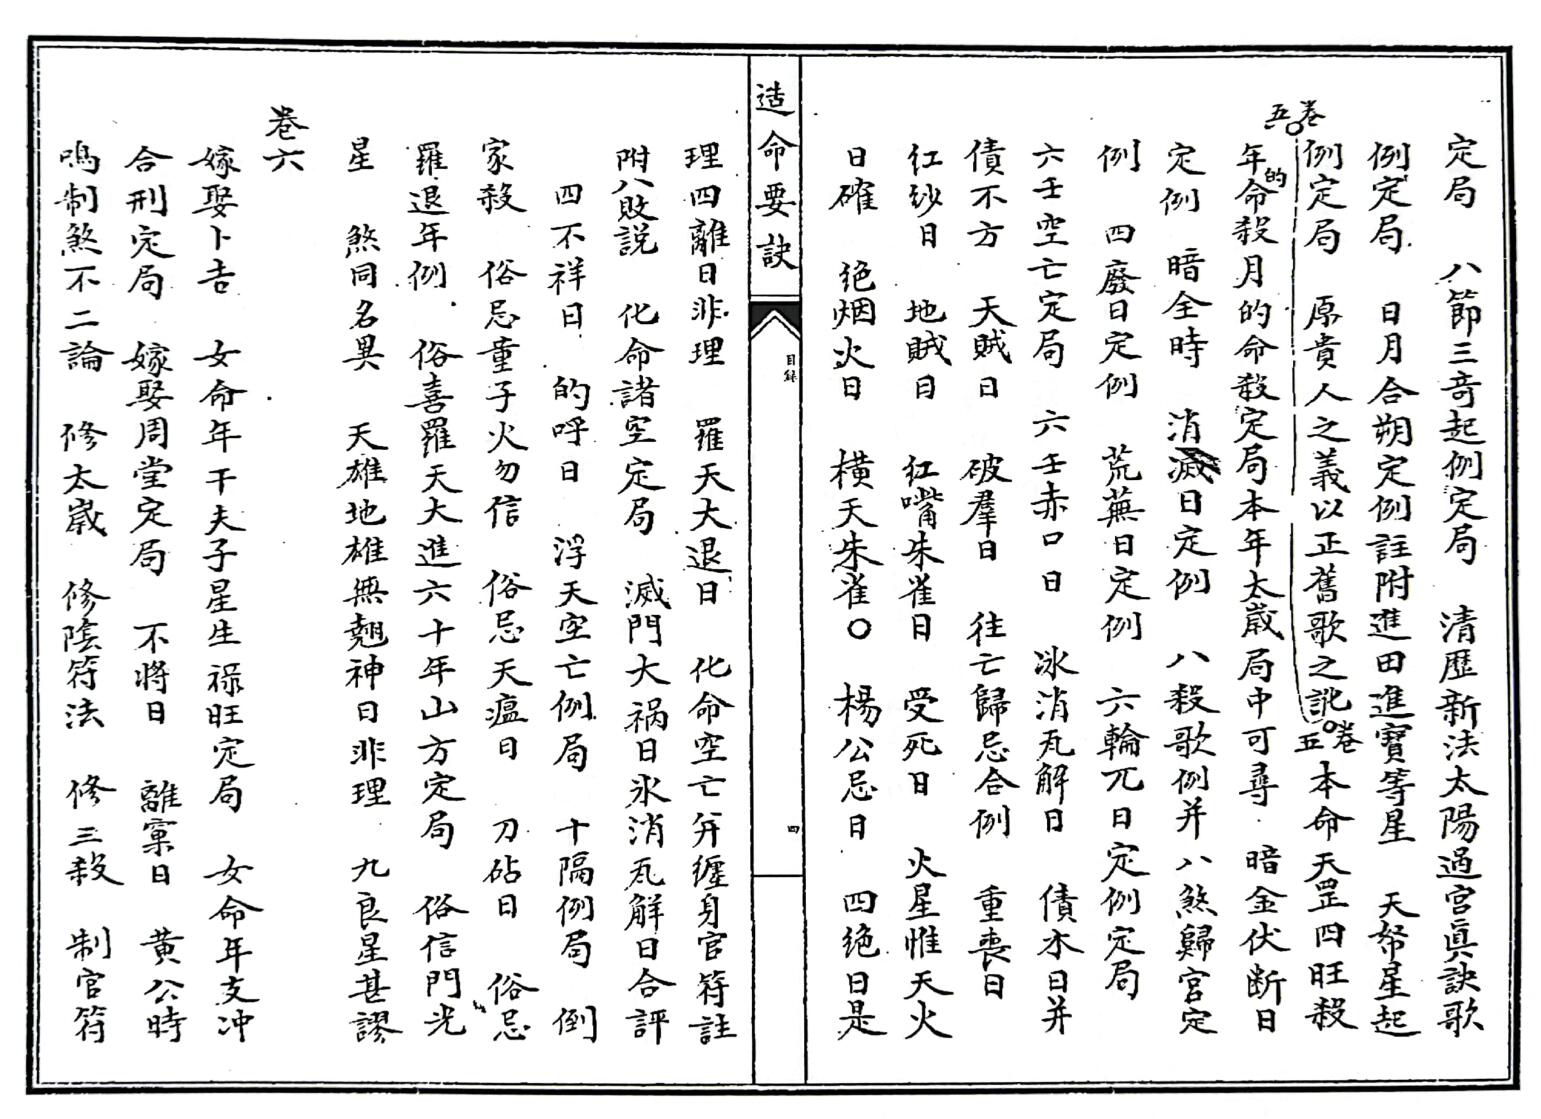 定局　八節三竒起例定局　清歷新法太陽過宮眞訣歌
例定局　日月合朔定例註附進田進寶等星　天帑星起
卷五
例定局　原貴人之義以正舊歌之訛
卷五
本命天罡四旺殺
年的命殺月的命殺定局本年太歲局中可尋　暗金伏断日
定例　暗全時　消滅日定例　八殺歌例并八煞歸宮定
例　四廢日定例　荒蕪日定例　六輪兀日定例定局
六壬空亡定局　六壬赤口日　冰消瓦解日　債木日并
債不方　天賊日　破羣日　往亡歸忌合例　重喪日
紅紗日　地賊日　紅嘴朱雀日　受死日　火星惟天火
日確　绝烟火日　横天朱雀〇　楊公忌日　四绝日是
造命要訣
目錄
四
理四離日非理　羅天大退日　化命空亡并纏身官符註
附八敗説　化命諸空定局　滅門大祸日氷消瓦解日合評
四不祥日　的呼日　浮天空亡例局　十隔例局　倒
家殺　俗忌童子火勿信　俗忌天瘟日　刀砧日　俗忌
羅退年例　俗喜羅天大進六十年山方定局　俗信門光
星　煞同名異　天雄地雄無翹神日非理　九良星甚謬
卷六
嫁娶卜吉　女命年干夫子星生禄旺定局　女命年支冲
合刑定局　嫁娶周堂定局　不將日　離窠日　黄公時
鳴制煞不二論　修太歲　修陰符法　修三殺　制官符